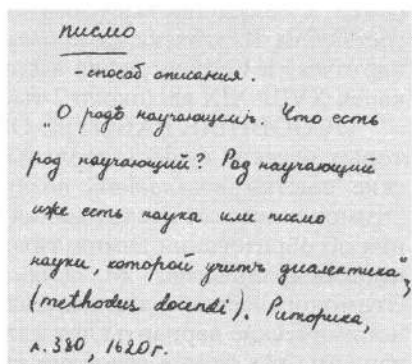 писмо
- способ описания.
„О родѣ научающемъ. Что есть
род научающий? Род научающий
иже есть наука или писмо
науки, которой учитъ диалектика“,
(methodus docendi). Риторика,
л. 380, 1620 г.